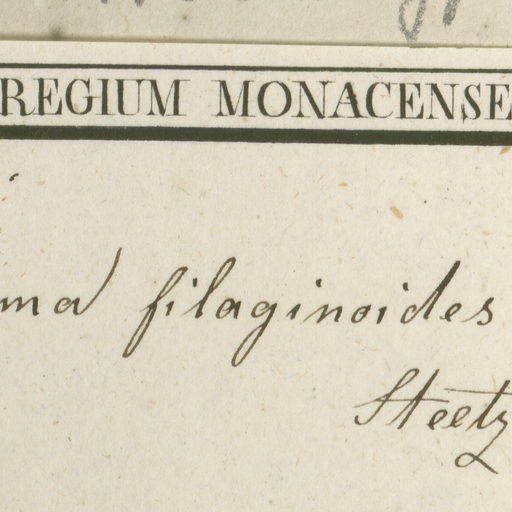 REGIUM MONACENSE
ma filaginoides
Steetz